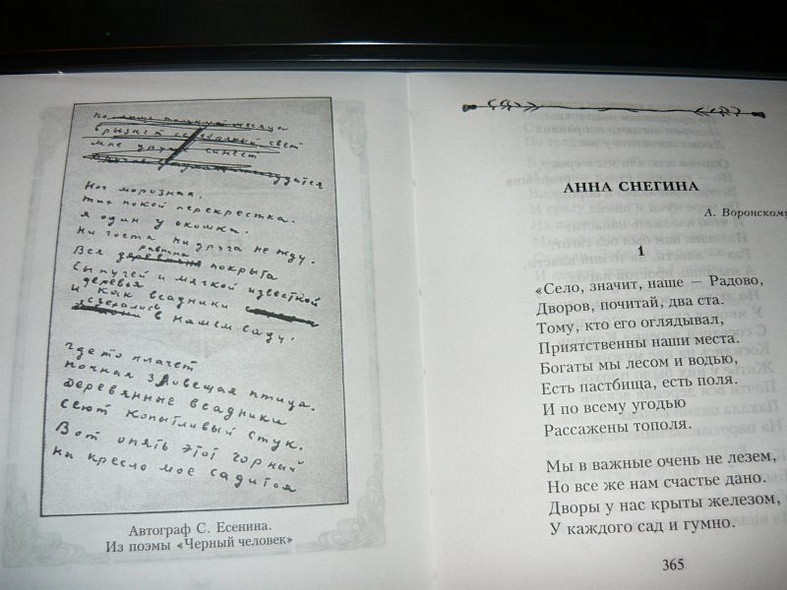 врызнет серебряный свет
мне другие синеет
Ноч морозная.
Тих покой перекрестка.
Я один у окошка.
Ни гостя ни друга не жду.
равнина
Вся покрыта
Сыпучей и мягкой известкой
и деревья
Как всадники
в нашем саду.
Где то плачет
Ночная зловещая птица.
Деревянные всадники
Сеют копытливый стук.
Вот опять этот чорный
На кресло мое садится
Автограф С. Есенина.
Из поэмы «Черный человек»
АННА СНЕГИНА
А. Воронскому
1
«Село, значит, наше — Радово,
Дворов, почитай, два ста.
Тому, кто его оглядывал,
Приятственны наши места.
Богаты мы лесом и водью,
Есть пастбища, есть поля.
И по всему угодью
Рассажены тополя.
Мы в важные очень не лезем,
Но все же нам счастье дано.
Дворы у нас крыты железом,
У каждого сад и гумно.
365